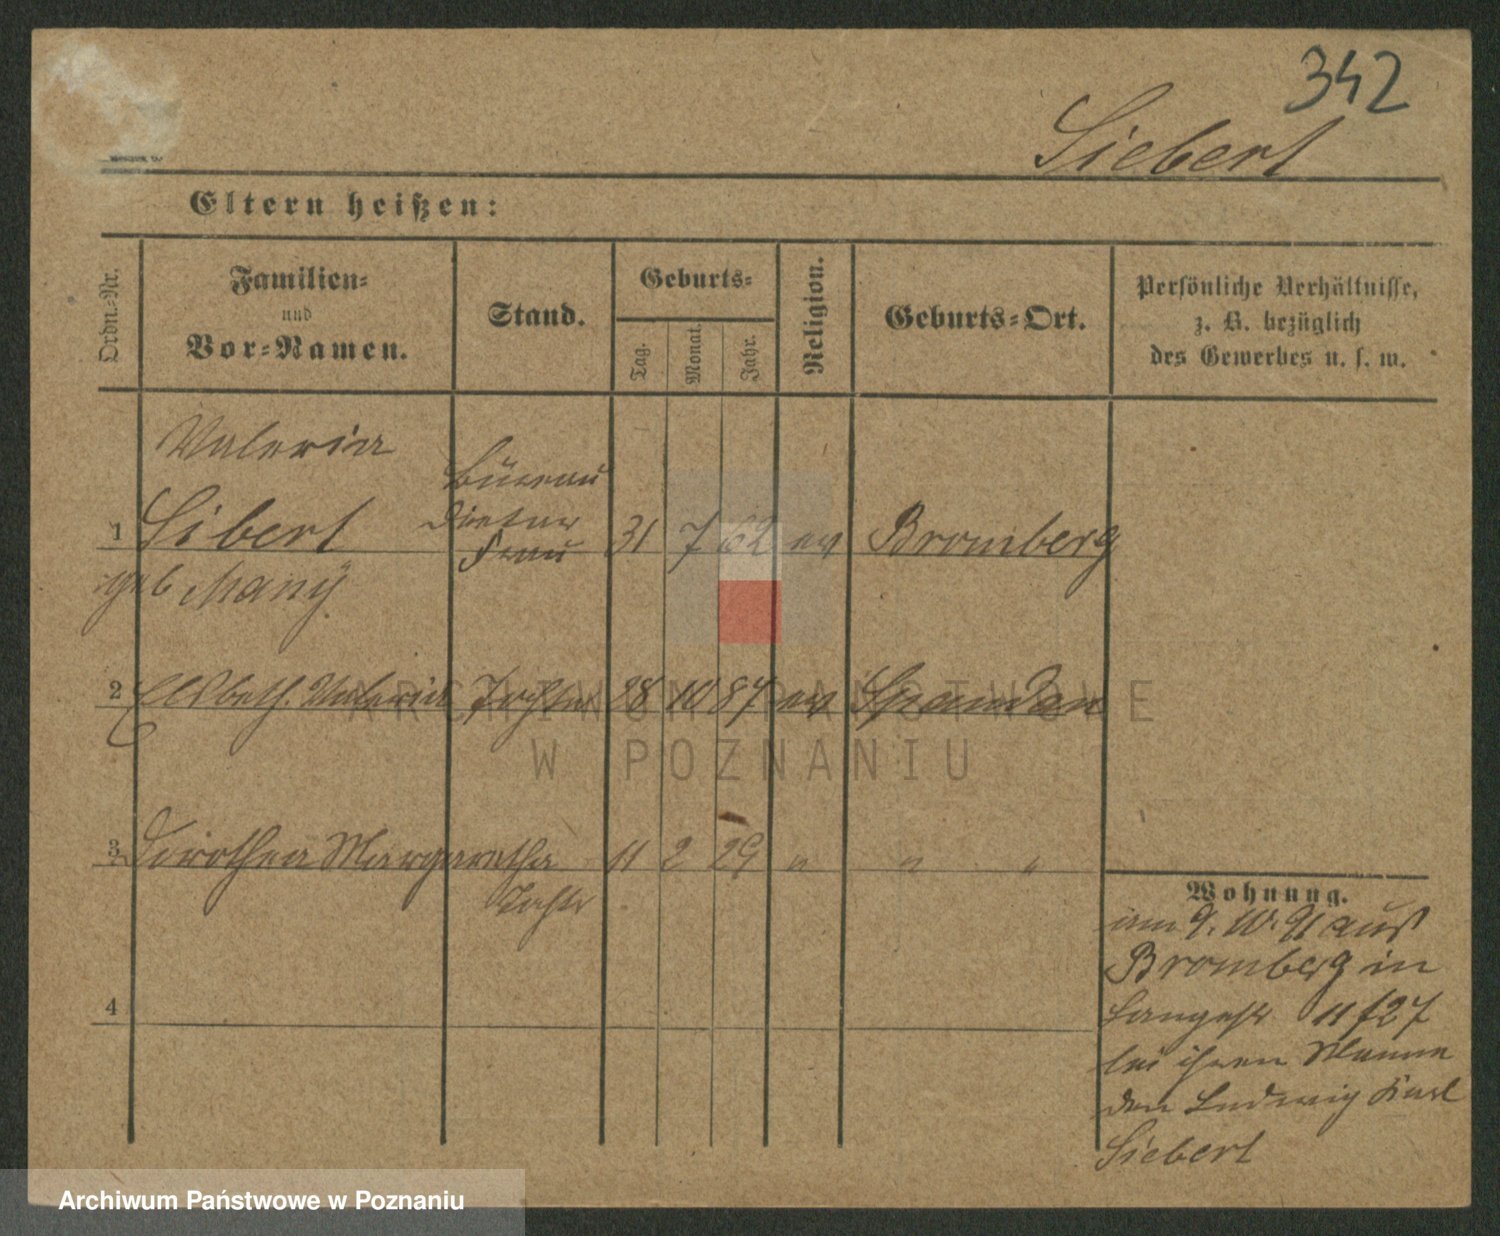 342
Siebert
Eltern heißen:
Ordn.-Nr.
Familien-
und
Vor-Namen.
Stand.
Geburts-
Tag.
Monat.
Jahr.
Religion.
Geburts-Ort.
Persönliche Verhältnisse,
z. B. bezüglich
des Gewerbes u. s. w.
Valeria
Büreau
1 Sibert Diätar 31 7 62 ev Bromberg
Frau
geb Maný
2 Elsbeth. Valeria Tochter 28 10 87 ev Spandau
3 Dorothea Margaretha 11 2 29 " " "
Tochter
4
Wohnung.
am 9. 10. 91 aus
Bromberg in
Langestr 11/27
bei ihrem Manne
den Ludwig Karl
Siebert
ARCHIWUM PAŃSTWOWE
W POZNANIU
Archiwum Państwowe w Poznaniu